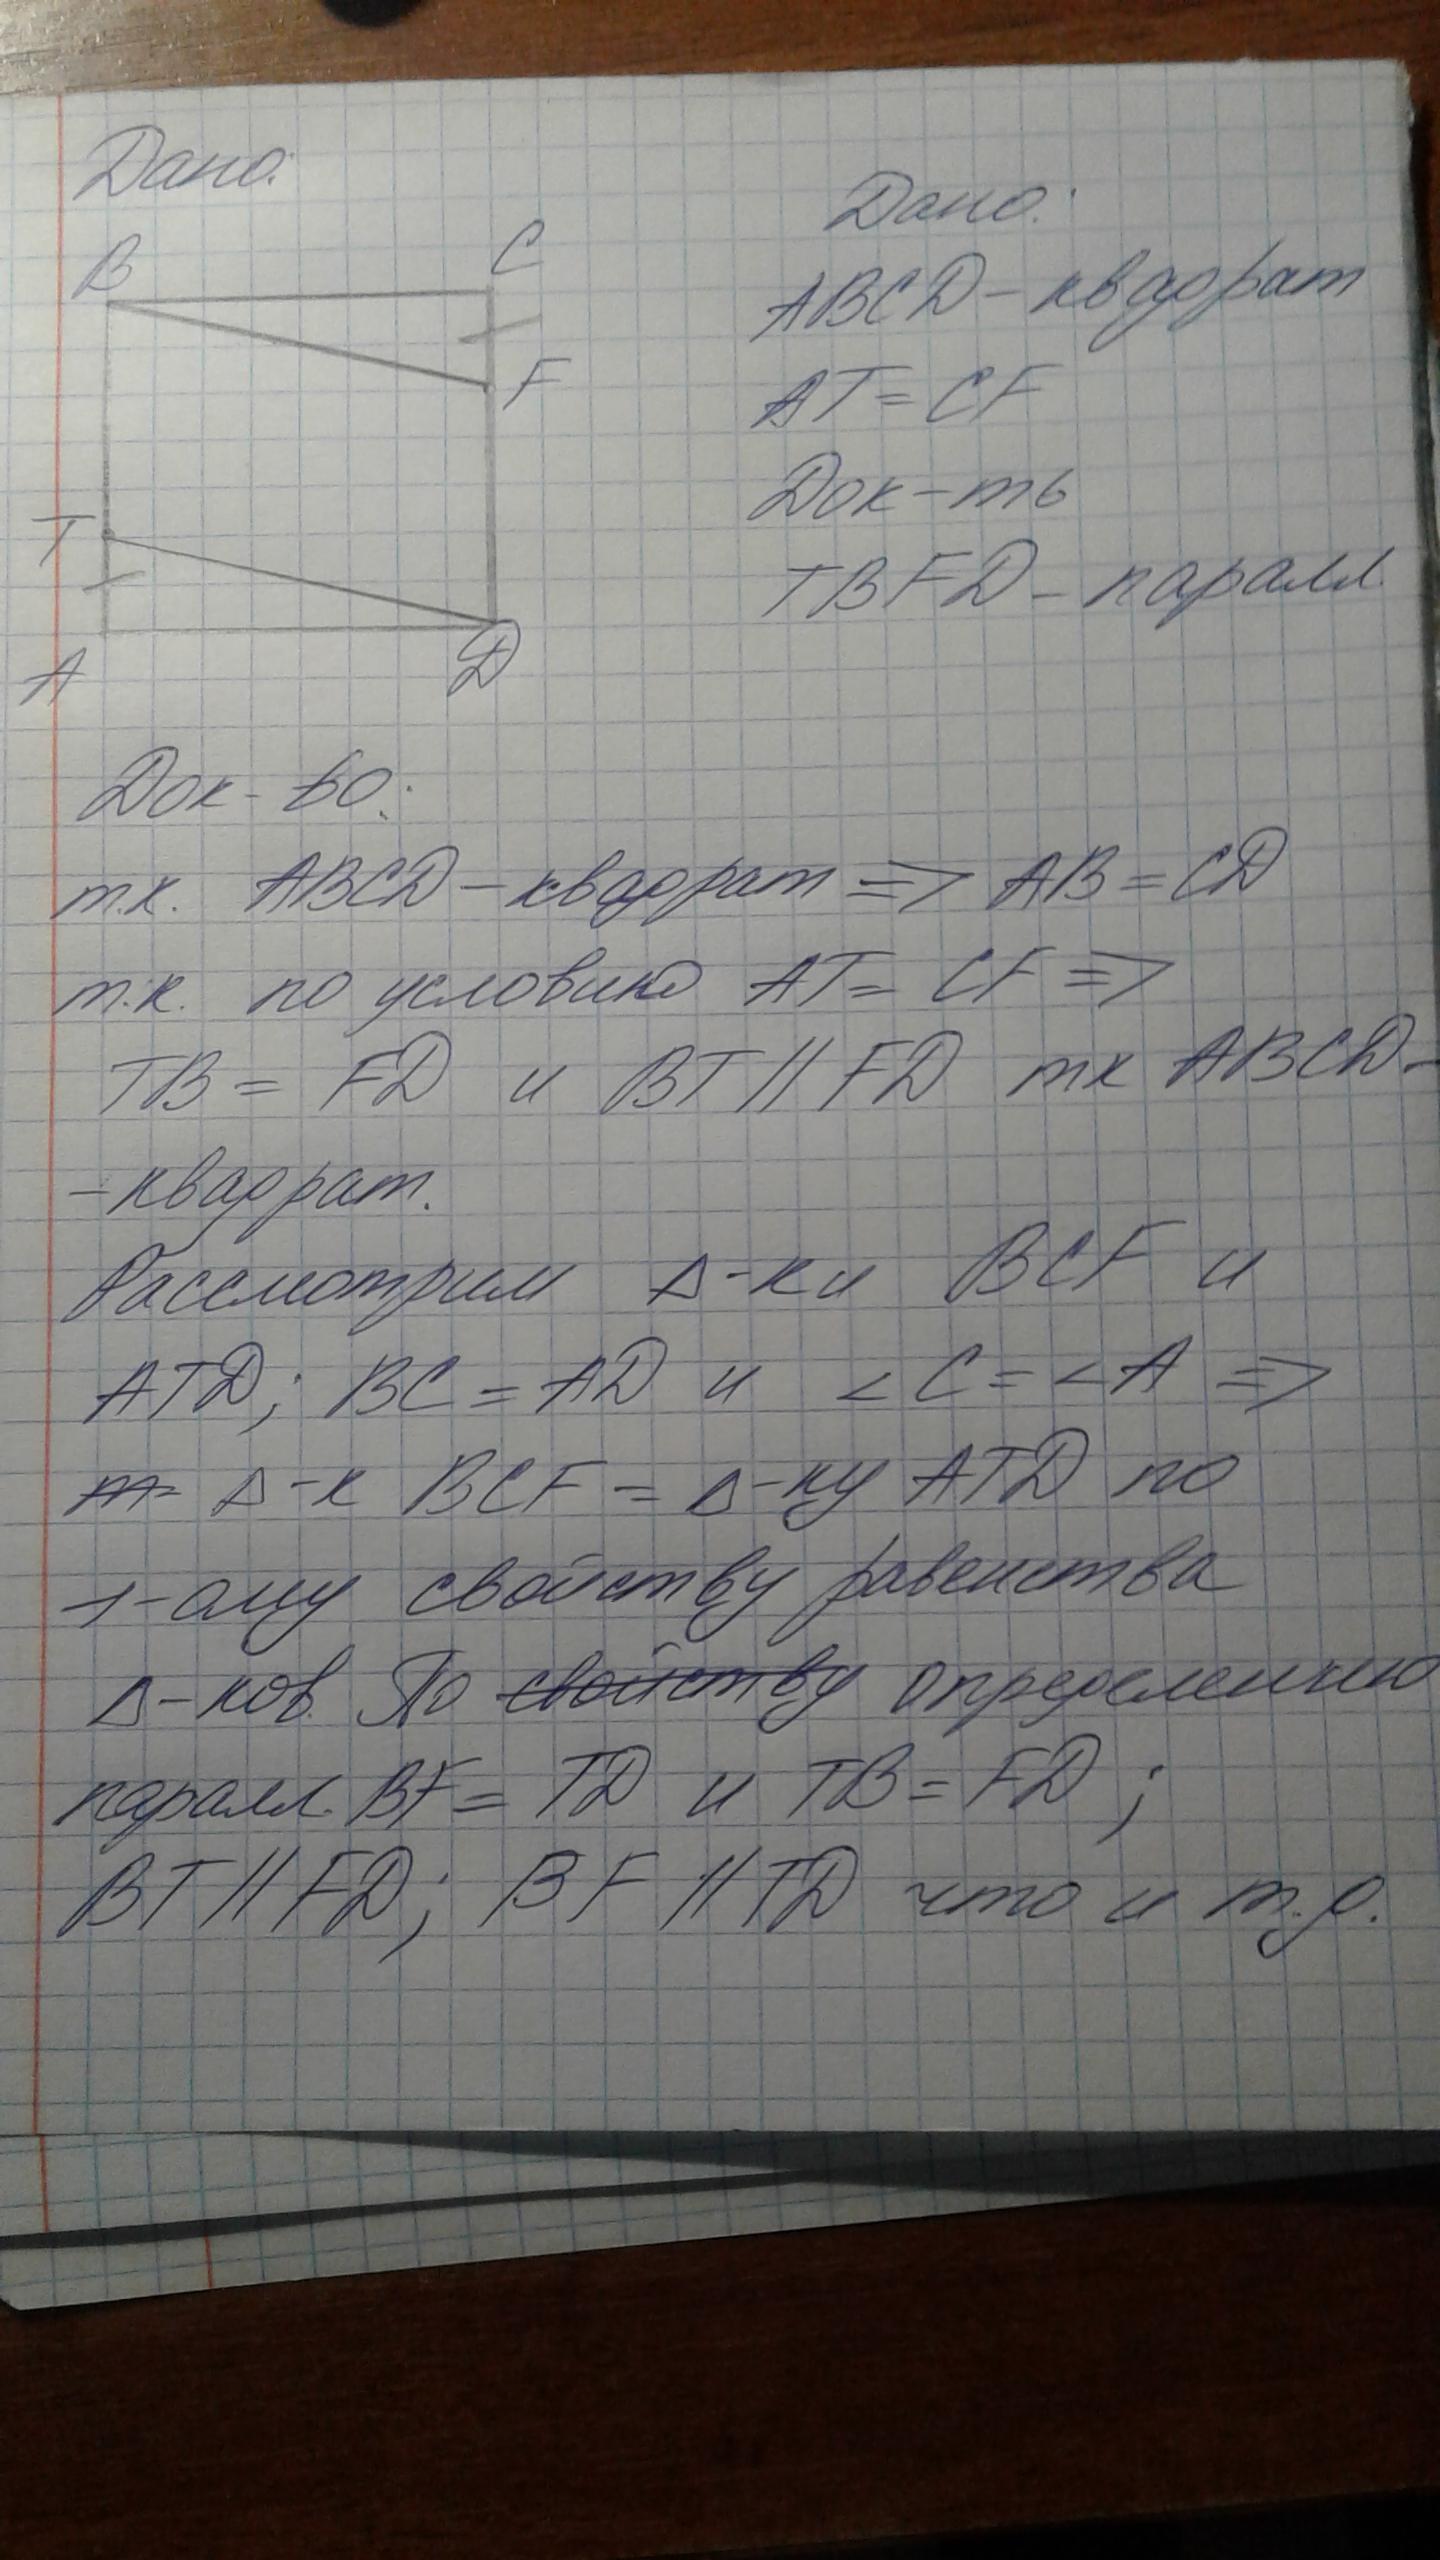 Дано:
B
C
F
T
A
D
Дано:
ABCD - квадрат
AT = CF
Док-ть
TBFD - паралл.
Док-во:
т.к. ABCD - квадрат => AB = CD
т.к. по условию AT = CF =>
TB = FD и BT || FD тк ABCD -
- квадрат.
Рассмотрим Δ-ки BCF и
ATD; BC = AD и ∠C = ∠A =>
Δ-к BCF = Δ-ку ATD по
1-ому свойству равенства
Δ-ков. По свойству определению
паралл. BF = TD и TB = FD;
BT || FD; BF || TD что и т.д.